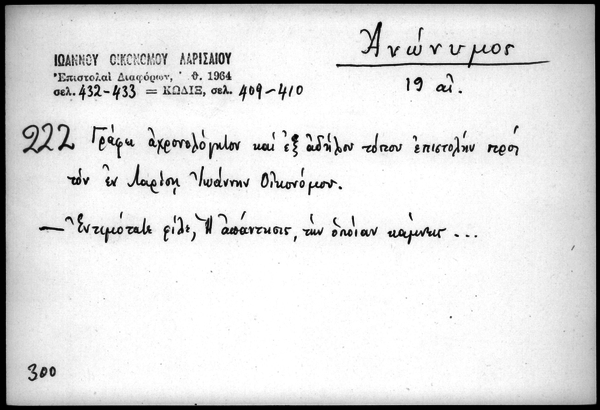 Ἀνώνυμος
19 αἰ.
ΙΩΑΝΝΟΥ ΟΙΚΟΝΟΜΟΥ ΛΑΡΙΣΑΙΟΥ
Ἐπιστολαὶ Διαφόρων, ʹ Θ. 1964
σελ. 432-433 = ΚΩΔΙΞ, σελ. 409-410
222 Γράφει ἀχρονολόγητον καὶ ἐξ ἀδήλου τόπου ἐπιστολὴν πρὸς
τὸν ἐν Λαρίσῃ Ἰωάννην Οἰκονόμου.
— Ἐντιμότατε φίλε, Ἡ ἀπάντησις, τὴν ὁποίαν κάμνεις ...
300